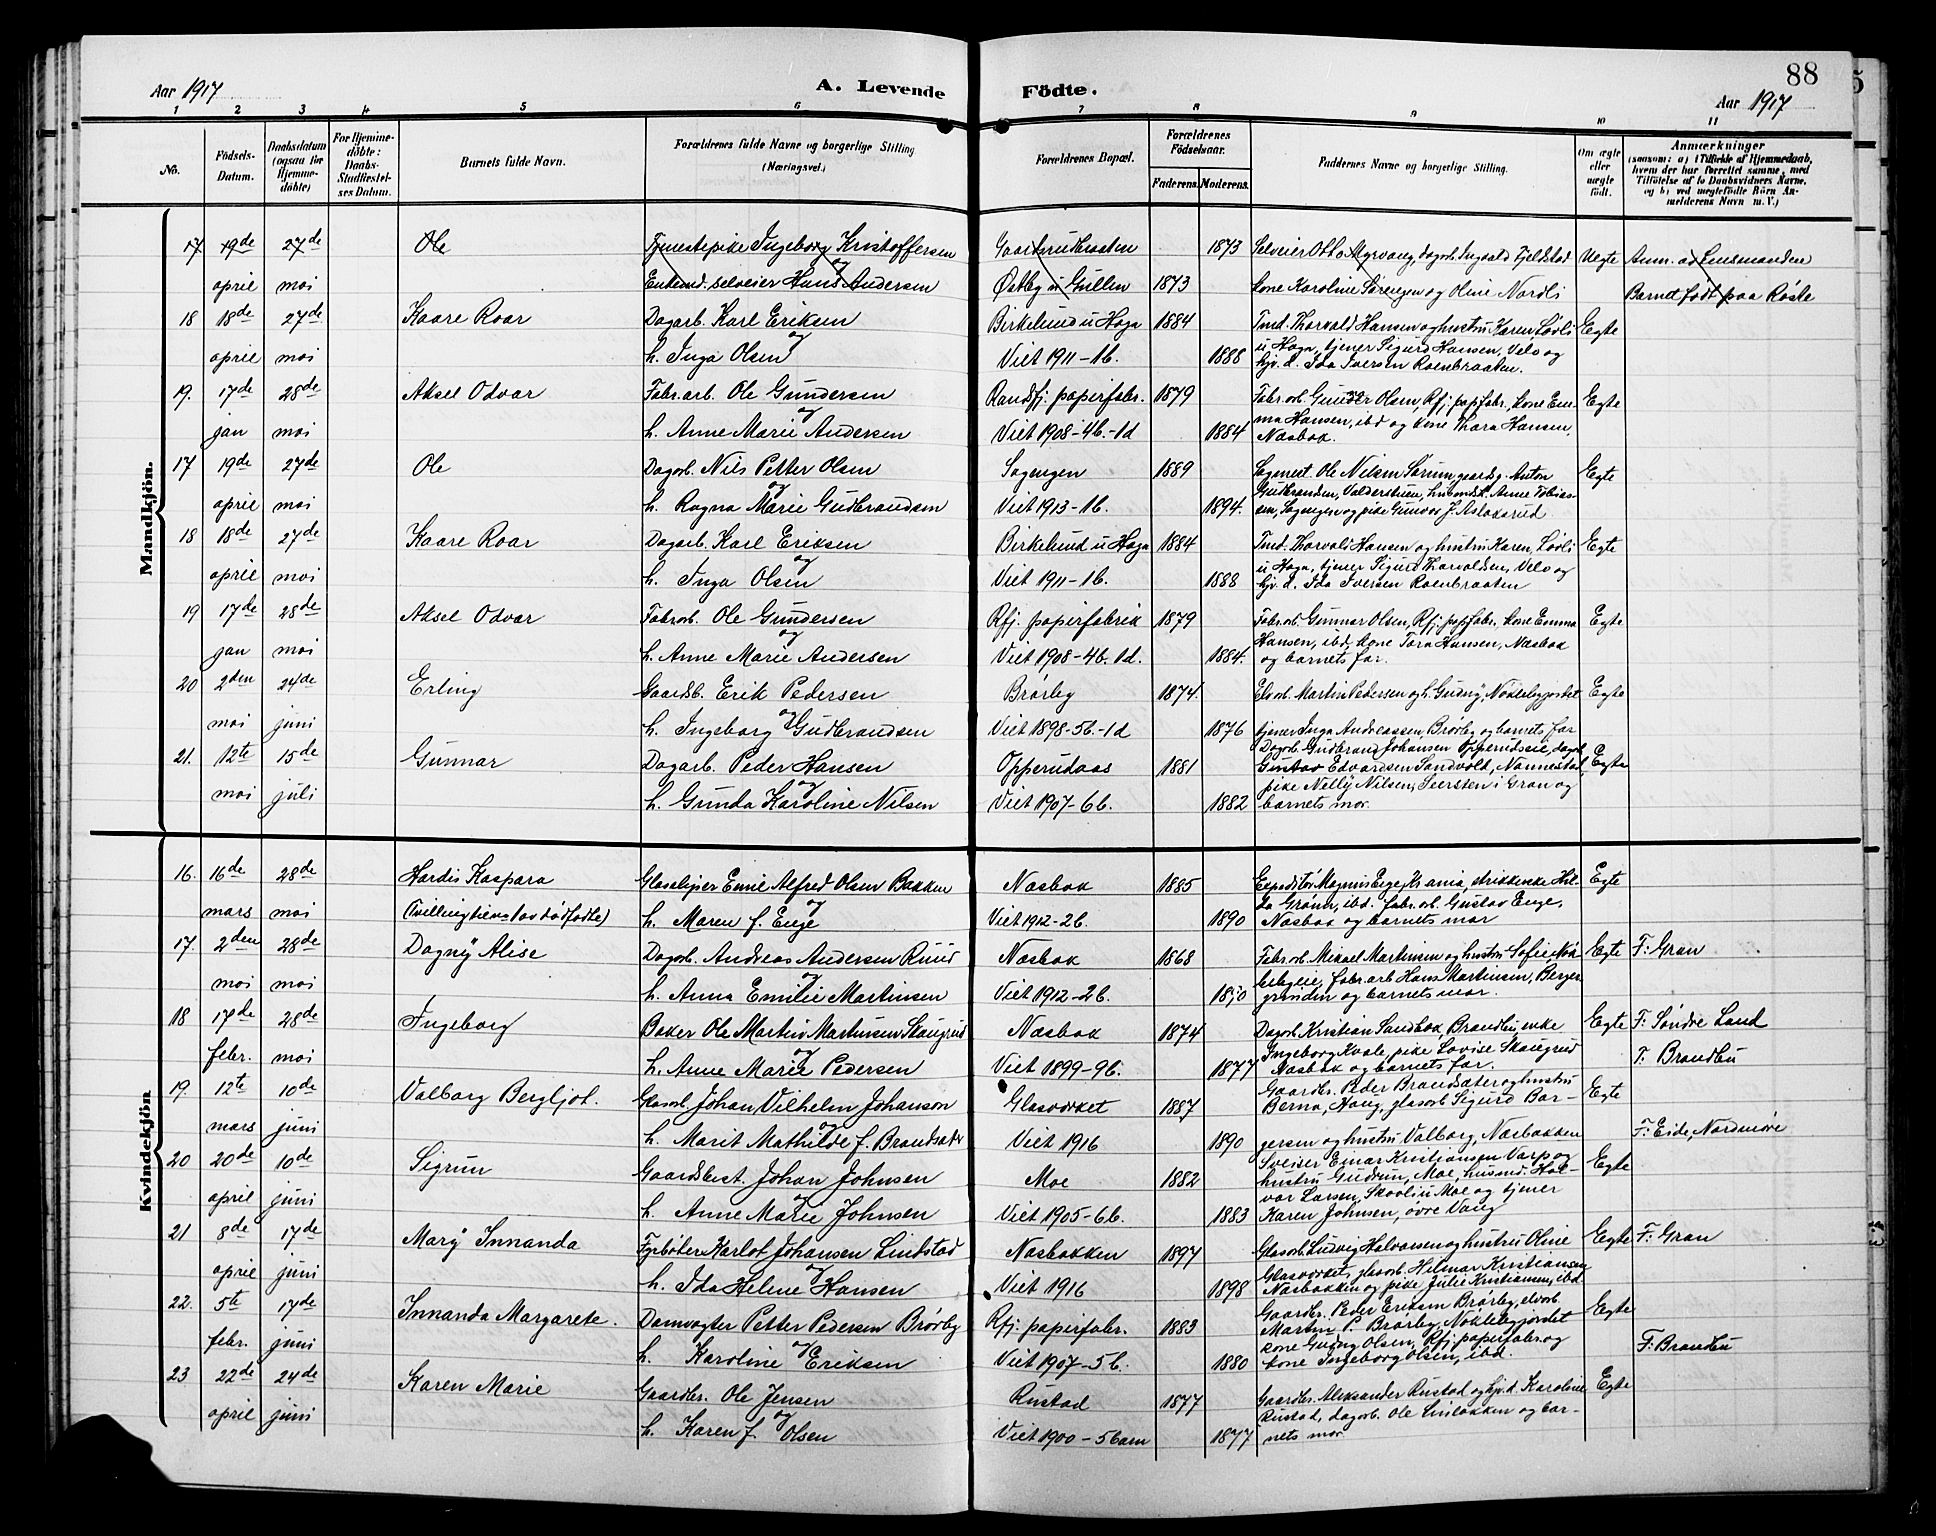 88
Aar 1917 A. Levende Födte. Aar 1917
1 2 3 4 5 6 7 8 9 10 11
No. Födsels-Datum. Daabsdatum (ogsaa for Hjemme-döbte) For Hjemme-döbte: Daabs-Stadfæstel-ses Datum. Barnets fulde Navn. Forældrenes fulde Navne og borgerlige Stilling (Næringsvei.) Forældrenes Bopæl. Forældrenes Födselsaar. Faderens. Moderens. Faddernes Navne og borgerlige Stilling. Om ægte eller uægte födt. Anmærkninger (saasom: a) Tilfælde af Hjemmedaab, hvem der har forrettet samme, med Tilföielse af to Daabsvidners Navne, og b) ved uegtefödte Börn An-melderens Navn m. V.)
Mandkjön.
17 19de 27de Ole Tjenestepike Ingeborg Kristoffersen 1873 Selveier Otto Myrvang, dagarb. Ingvald Fjeldstad Uegte Anm. av Lensmanden
april mai og Enkemd. selveier Hans Andersen Østby u Gullen 1873 kone Karoline Sörensen og Oline Nordli Barnet født paa Røste
18 18de 27de Kaare Roar Dagarb. Karl Eriksen Birkelund u Haga 1884 Tmd. Thorvald Hansen og hustru Karen, Lövli Egte
april mai og h. Inga Olsen Viet 1911-1b. 1888 u Haga, tjener Sigurd Hansen, Velo og
hjv. d. Ida Iversen Roenbraaten.
19. 17de 28de Aksel Odvar Fabr.arb. Ole Gundersen Randsfj: papirfabr. 1879 Fabr.arb. Gunder Olsen, Rfj: papfabr., kone Em- Egte
jan mai og h. Anne Marie Andersen Viet 1908-4b.-1d 1884 ma Hansen, ibd og kone Thora Hansen,
Næsbak.
17 19de 27de Ole Dagarb. Nils Petter Olsen Sagengen 1889 Sagmest. Ole Nilsen Sørum, gaardsg. Anton Egte
april mai og h. Ragna Marie Gudbrandsen Viet 1913-1b. 1894. Gudbrandsen, Valderstuen, husmdsk. Anne Tobias-
sen, Sagengen og pike Gunvor J. Aslaksrud.
18 18de 27de Kaare Roar Dagarb. Karl Eriksen Birkelund u Haga 1884 Tmd. Thorvald Hansen og hustru Karen, Lövli Egte
april mai og h. Inga Olsen Viet 1911-1b. 1888 u Haga, tjener Sigurd Thorvaldsen, Velo og
hjv. d. Ida Iversen Roenbraaten
19 17de 28de Aksel Odvar Fabrarb. Ole Gundersen Rfj. papirfabrik 1879 Fabrarb. Gunnar Olsen, Rfj: papfabr., kone Emma Egte
jan mai og h. Anne Marie Andersen Viet 1908-4b. 1d. 1884. Hansen, ibd, kone Tora Hansen, Næsbak
og barnets far.
20 2den 24de Erling Gaardb. Erik Pedersen Brørby 1874 Elvarb. Martin Pedersen og h. Gudny, Nøklebyjordet Egte
mai juni og h. Ingeborg Gudbrandsen Viet 1898-5b.-1d 1876 tjener Inga Andreassen, Brørby og barnets far
21. 12te 15de Gunnar Dagarb. Peder Hansen Opperudaas 1881 Dagarb. Gudbrand Johansen Opperudseie, dagarb. Egte
mai juli og h. Gunda Karoline Nilsen Viet 1907-6b. 1882 Gustav Edvardsen Sandvold, Nannestad,
pike Nelly Nilsen, Seersten i Gran og
barnets mor.
Kvindekjön
16. 16de 28de Hardis Kaspara Glassliper Emil Alfred Olsen Bakken Næsbak 1885 Expeditör Magnus Enge, Krania, strikkerske Hil- Egte
mars mai (Tvillingtiens tav dödfødte) og h. Maren f. Enge Viet 1912-2b. 1890 da Grønn, ibd. fabr. arb. Gustav Enge,
Næsbak og barnets mor
17. 2den 28de Dagny Alise Dagarb. Andreas Andersen Ruud Næsbak 1868 Fabr.arb. Mikael Martinsen og hustru Sofie, Nök- Egte F: Gran
mai mai og h. Anna Emilie Martinsen Viet 1912-2b. 1890 lebyeie, fabr. arb Hans Martinsen, Berger
grinden og barnets mor.
18 17de 28de Ingeborg Baker Ole Martin Martinsen Skaugrud Næsbak 1874 Dagarb. Kristian Sandbak, Brandbu, enke Egte F: Søndre Land
febr. mai og h. Anne Marie Pedersen Viet 1899-9b. 1877 Ingeborg Kvale, pike Lovise Skaugrud F. Brandbu
Næsbak og barnets far.
19. 12te 10de Valborg Bergljot. Glasarb. Johan Vilhelm Johanson Glasværket 1887 Gaardbr. Peder Brandsæter og hustru Egte
mars juni og h. Marit Mathilde f. Brandsæter Viet 1916 1890 Berna, Haug, glasarb Sigurd Bar-
gersen og hustru Valborg, Næsbakken F: Eide, Nordmøre
20 20de 10de Sigrun Gaardbest. Johan Johnsen Moe 1882 Sveiser Einar Kristiansen Varp og Egte
april juni og h. Anne Marie Johnsen Viet 1905-6b. 1883 hustru Gudrun, Moe, husmd. Hal-
var Larsen, Skovli u Moe og tjener
Karen Johnsen, övre Vang
21 8de 17de Mary Innanda Fyrbøter Karlot Johansen Lindstad Næsbakken 1897 Glasarb. Ludvig Halvorsen og hustru Oline Egte F: Gran
april juni og h. Ida Helene Hansen Viet 1916 1898 Glasværket, glasarb. Hilmar Kristiansen
Næsbakken og pike Julie Kristiansen, ibd.
22. 5te 17de Innanda Margarete. Damvogter Petter Pedersen Brørby Rfj: papirfabr. 1883 Gaardbr. Peder Eriksen Brørby, elvarb. Egte
febr. juni og h. Karoline Eriksen Viet 1907-5b. 1880 Martin P. Brørby, Nøklebyjordet
kone Gudny Olsen, Rfj: papirfabr. og F: Brandbu
kone Ingeborg Olsen, ibd.
23 22de 24de Karen Marie Gaardbr. Ole Jensen Rustad 1877 Gaardbr. Aleksander Rustad og hjv. d. Karoline Egte
april juni og h. Karen f. Olsen Viet 1900-5barn 1877 Rustad, dagarb. Ole Linløkken og bar-
nets mor.